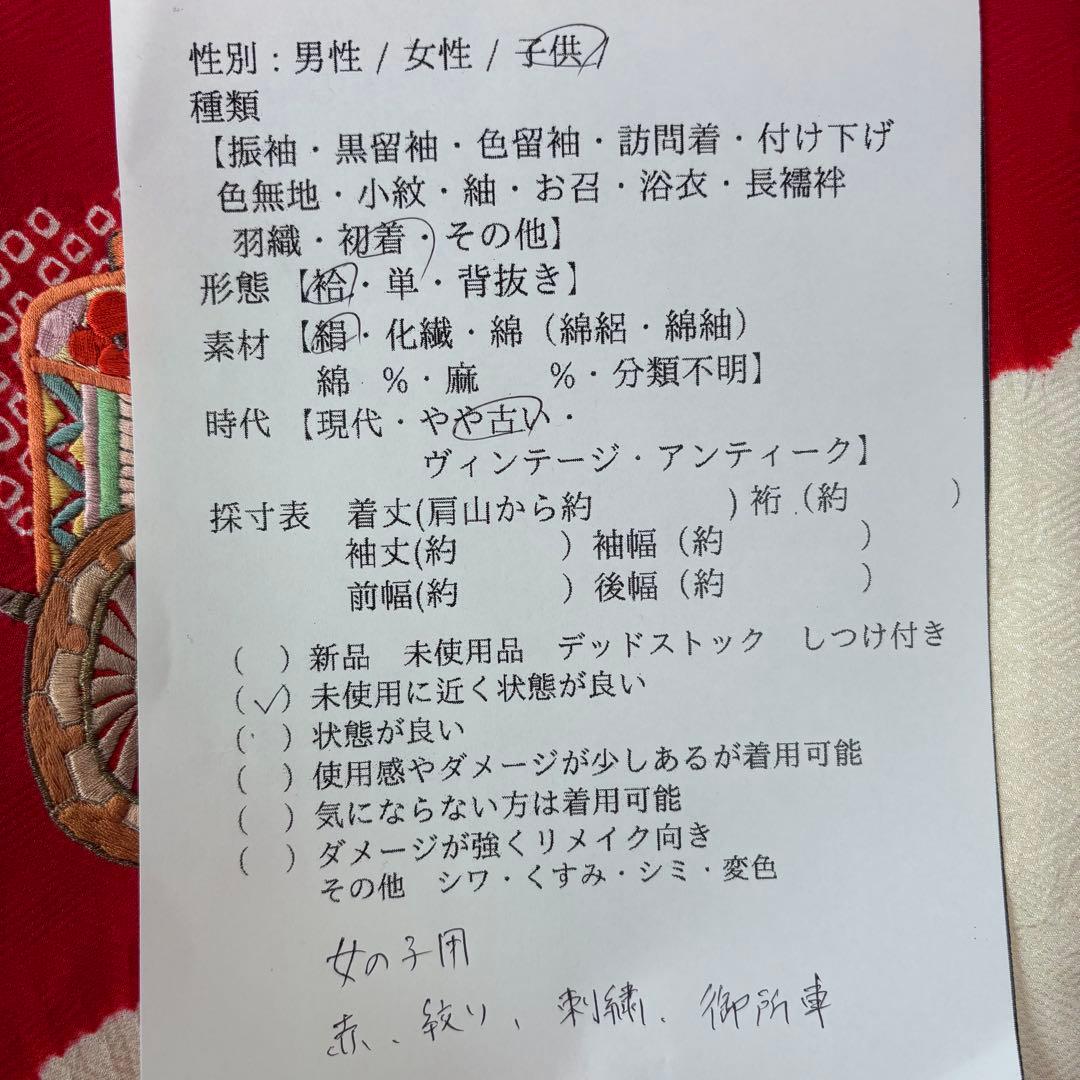 性別：男性 / 女性 / 子供 /
種類
【振袖・黒留袖・色留袖・訪問着・付け下げ
色無地・小紋・紬・お召・浴衣・長襦袢
羽織・初着・その他】
形態【袷・単・背抜き】
素材【絹・化繊・綿（綿絽・綿紬）
綿 %・麻 %・分類不明】
時代【現代・やや古い・
ヴィンテージ・アンティーク】
採寸表 着丈(肩山から約 ) 裄（約 ）
袖丈(約 ）袖幅（約 ）
前幅(約 ）後幅（約 ）
( ) 新品 未使用品 デッドストック しつけ付き
(✓) 未使用に近く状態が良い
( ) 状態が良い
( ) 使用感やダメージが少しあるが着用可能
( ) 気にならない方は着用可能
( ) ダメージが強くリメイク向き
その他 シワ・くすみ・シミ・変色
女の子用
赤、絞り、刺繍、御所車